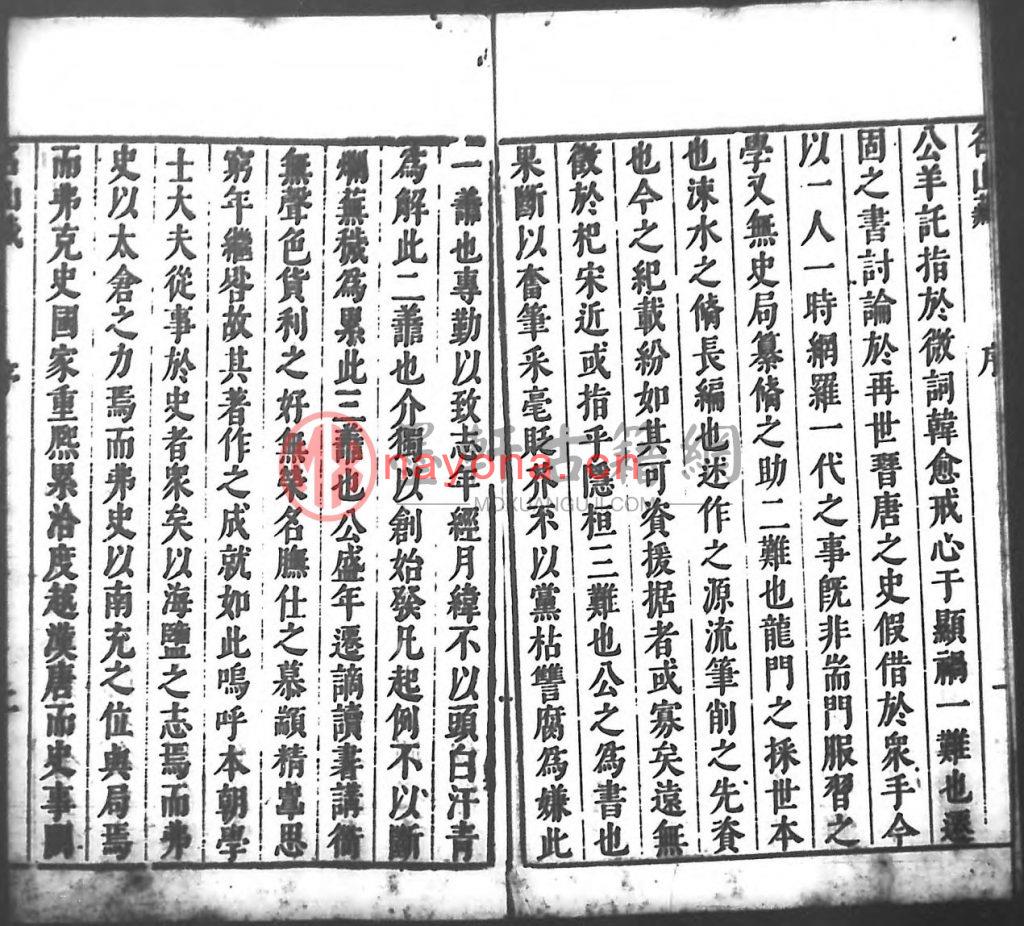 名山藏 序
公羊託指於微詞韓愈戒心于顯禍一難也遷
固之書討論於再世晉唐之史假借於衆手今
以一人一時網羅一代之事旣非耑門服習之
學又無史局纂脩之助二難也龍門之採世本
也涑水之脩長編也述作之源流筆削之先資
也今之紀載紛如其可資援据者或寡矣遠無
徵於杞宋近或指乎隱桓三難也公之為書也
果斷以奮筆采毫貶芥不以黨枯讐腐為嫌此
一善也專勤以致志年經月緯不以頭白汗青
為解此二善也介獨以創始發凡起例不以斷
爛蕪穢為累此三善也公盛年遷謫讀書講衜
無聲色貨利之好無榮名膴仕之慕顓精𩅞思
窮年繼晷故其著作之成就如此嗚呼本朝學
士大夫從事於史者衆矣以海鹽之志焉而弗
史以太倉之力焉而弗史以南充之位與局焉
而弗克史國家重熙累洽度越漢唐而史事闕
墨軒古籍網
nayona.cn
MOXUANGUJI.COM